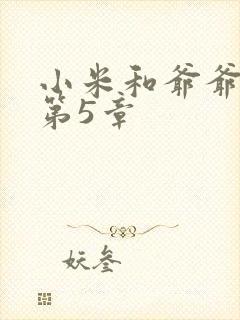 小米和爷爷
第5章
妖叁